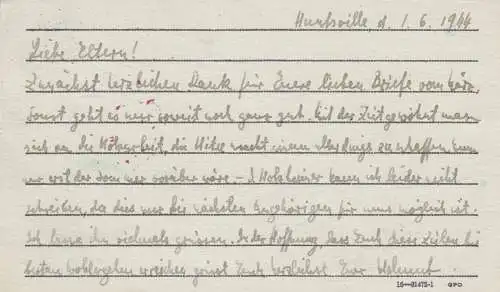 Huntsville, d. 1.6.1944
Liebe Eltern!
Zunächst herzlichen Dank für Euere lieben Briefe vom
Sonst geht es mir soweit noch ganz gut. Mit der Zeit gewöhnt man
sich an die Holzarbeit, die Hitze macht einem allerdings zu schaffen, wenn
nur erst der Sommer vorüber wäre. - Holsheimer kann ich leider nicht
schreiben, da dies nur bis nächsten Angehörigen für uns möglich ist.
Ich lasse ihn vielmals grüssen. In der Hoffnung, dass Euch diese Zeilen bei
bestem Wohlergehen erreichen grüsst Euch herzlichst Euer Helmut.
16—81475-1 GPO